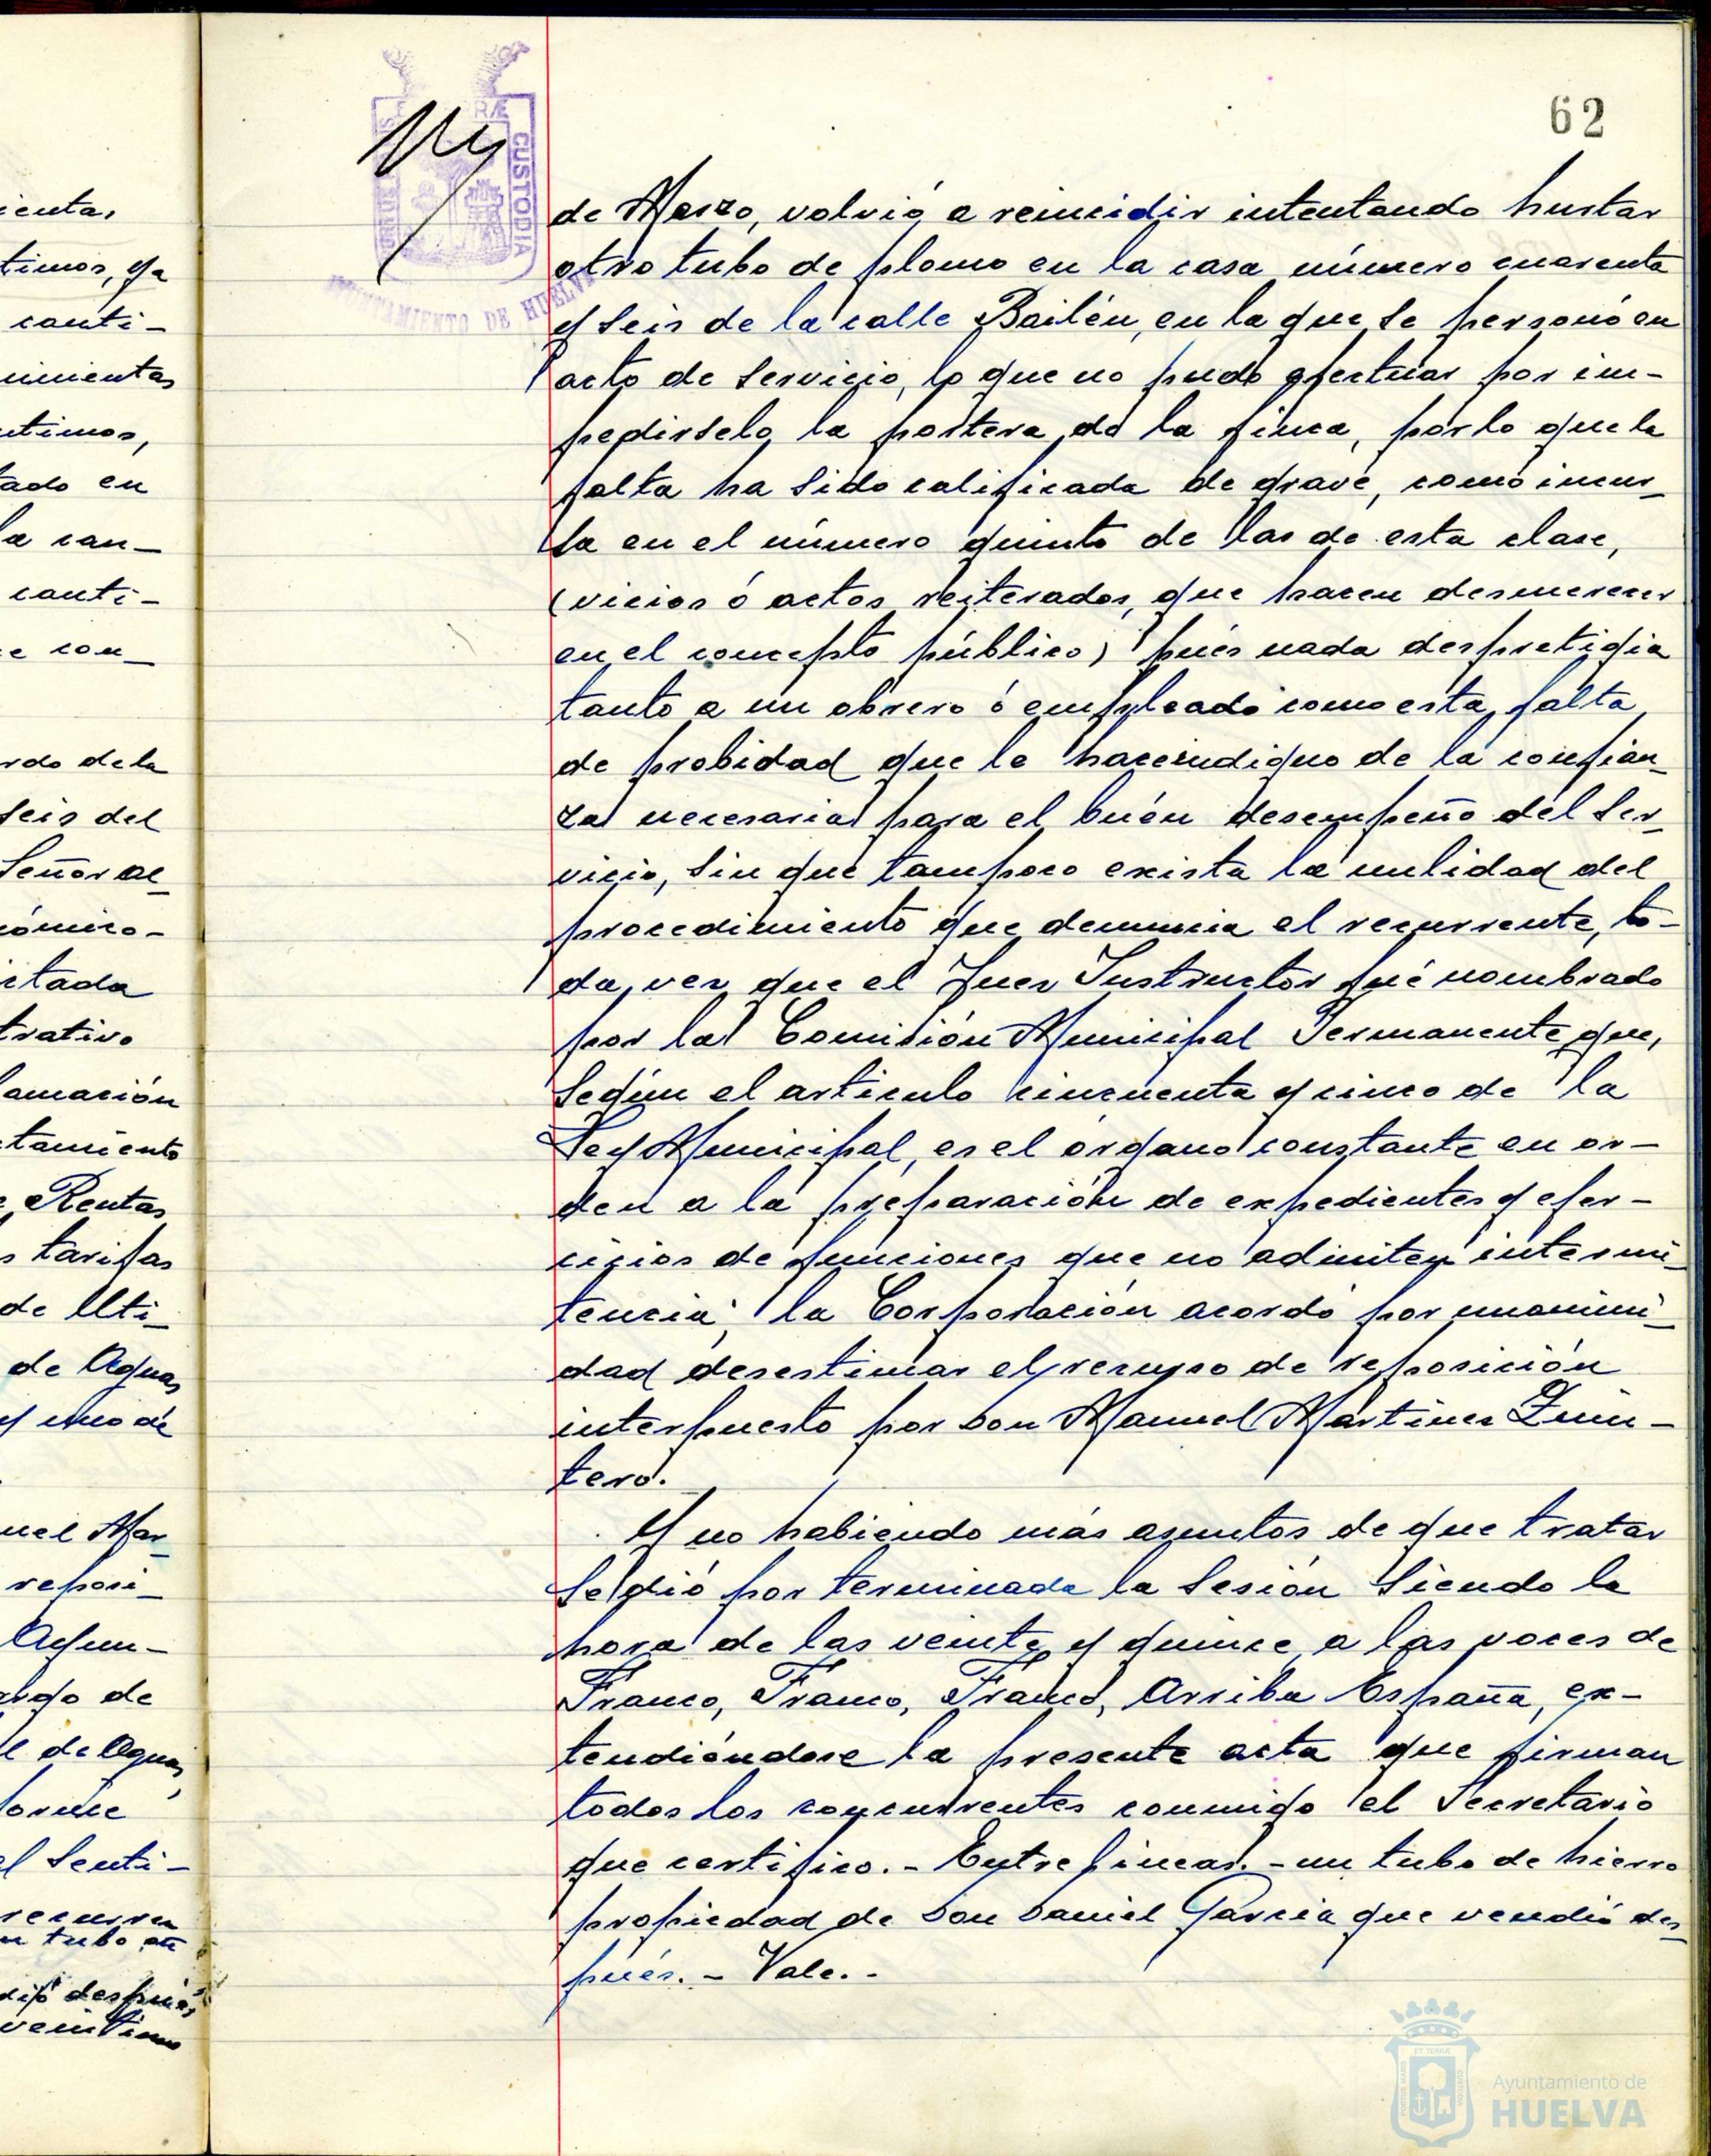 62
de Marzo, volvió a reincidir intentando hurtar
otro tubo de plomo en la casa número cuarenta
y seis de la calle Bailén, en la que se personó en
acto de servicio, lo que no pudo efectuar por im-
pedirselo la portera de la finca, por lo que la
falta ha sido calificada de grave, como incur-
sa en el número quinto de las de esta clase,
(vicios ó actos reiterados, que hacen desmerecer
en el concepto público) pués nada desprestigia
tanto a un obrero ó empleado como esta falta
de probidad que le hace indigno de la confian-
za necesaria para el buén desempeño del ser-
vicio, sin que tampoco exista la nulidad del
procedimiento que denuncia el recurrente, to-
da vez que el Juez Instructor fué nombrado
por la Comisión Municipal Permanente que,
según el articulo cincuenta y cinco de la
Ley Municipal, es el órgano constante en or-
den a la preparación de expedientes y ejer-
cicios de funciones que no admiten intermi-
tencia; la Corporación acordó por unanimi-
dad desestimar el recurso de reposición
interpuesto por Don Manuel Martinez Quin-
tero.
Y no habiendo más asuntos de que tratar
se dió por terminada la sesión siendo la
hora de las veinte y quince a las voces de
Franco, Franco, Franco, Arriba España, ex-
tendiéndose la presente acta que firman
todos los concurrentes conmigo el Secretario
que certifico.- Entre lineas.- un tubo de hierro
propiedad de Don Daniel Garcia que vendió des-
pués.- Vale.-
CUSTODIA
AYUNTAMIENTO DE HUELVA
ienta,
timos, ya
canti-
timos,
tado en
la can-
canti-
e con-
rdo de la
seis del
Señor al-
ómico-
trativo
lamación
tamiento
Rentas
s tarifas
de Uti-
de Aguas
uel Mar-
reposi-
Ayun-
argo de
l de Aguas,
l senti-
n tubo
despues,
Ayuntamiento de
HUELVA